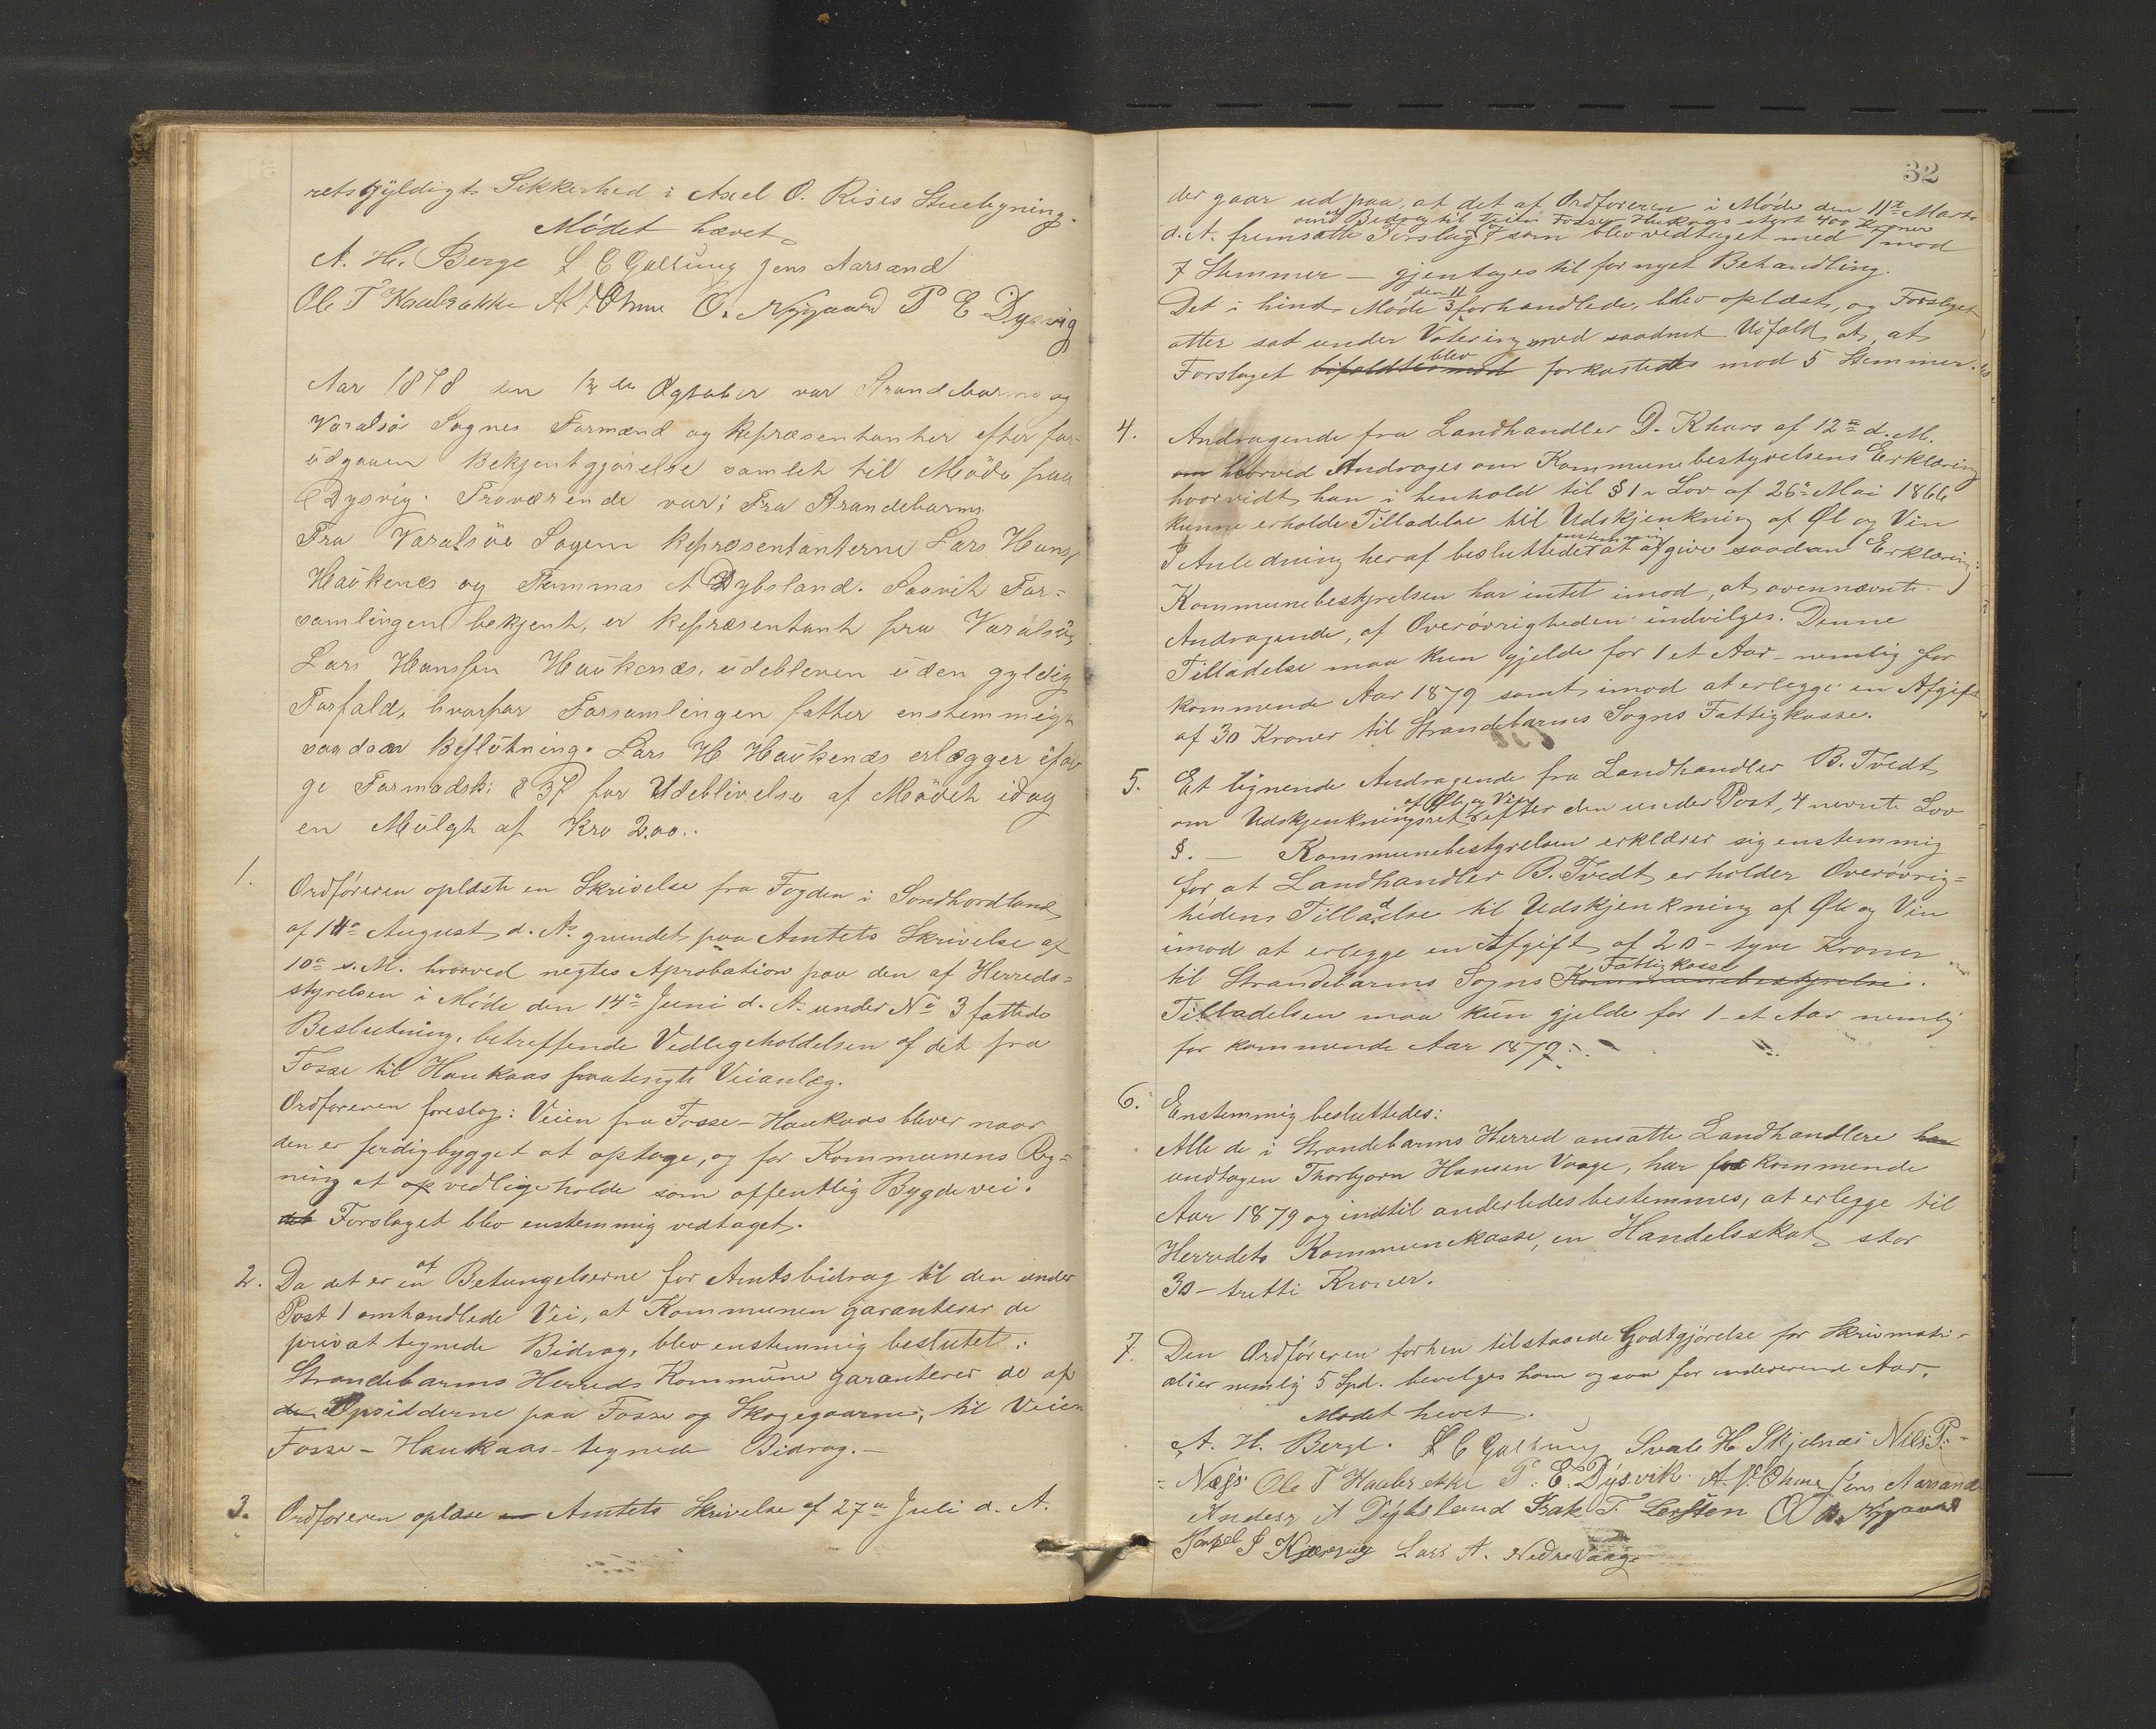 retsgyldigt Sikkerhed i Axel O. Rises Stuebygning.
Mödet hævet
A. H. Berge L C Galtung Jens Aarsand
Ole T Haabrække A Ohme O. Nygaard P E Dysvig
Aar 1878 den de Ogtober var Strandebarms og
Varalsö Sognes Formænd og Repræsentanter efter for-
udgaaen Bekjentgjörelse samlet til Möde paa
Dysvig. Fraværende var: Fra Strandebarms
Fra Varalsöe Sogem Repræsentanterne Lars Hans
Haukenæs og Tommas A Dybsland. Saavit For-
samlingen bekjent, er Repræsentant fra Varalsö,
Lars Hanssen Haukenæs, udebleven uden gyldig
Forfald, hvorfor Forsamlingen fatter enstemmigt
saadaan Beslutning. Lars H Haukenæs erlægger iføl
ge Formadsk: § 37 for Udeblivelse af Mödet idag
en Mulgt af Kro 2,00..
1. Ordföreren oplæste en Skrivelse fra Fogden i Sondhordland
af 14de August d. A. grundet paa Amtets Skrivelse af
10de s. M. hvorved negtes Aprobation paa den af Herreds-
styrelsen i Möde den 14de Juni d. A. under No 3 fattede
Beslutning, betreffende Vedligeholdelsen af det fra
Fosse til Haukaas paatengte Veianlæg.
Ordføreren foreslog: Veien fra Fosse - Haukaas bliver naar
den er ferdigbygget at optage, og for Kommunens Reg-
ning at op vedligeholde som offentlig Bygdevei.
det Forslaget blev enstemmig vedtaget.
2. Da det er en af Betingelserne for Amtsbidrag til den under
Post 1 omhandlede Vei, at Kommunen garanterer de
privat tegnede Bidrag, blev enstemmig beslutet:
Strandebarms Herreds Kommune garanterer de af
de Opsidderne paa Fosse og Skogegaarne, til Veien
Fosse - Haukaas - tegnede Bidrag. -
3. Ordføreren oplæse en Amtets Skrivelse af 27de Juli d. A.
32
der gaar ud paa, at det af Ordføreren i Möde den 11te Marts
om Bidrag til Veien Fosse Haukaas stort 400 Kroner
d. A. fremsatte Forslag, som blev vedtaget med 7 mod
7 Stemmer - gjentages til fornyet Behandling.
Det i hint Möde den 11/3 forhandlede, blev oplæst, og Forslaget
atter sat under Votering med saadant Udfald, at
Forslaget bifaldtes mod blev forkastedes mod 5 Stemmer.
4. Andragende fra Landhandler D. Khars af 12te d. M.
om hvorved Andrages om Kommunebestyrelsens Erklæring
hvorvidt han i henhold til § 1 i Lov af 26de Mai 1866
kunne erholde Tilladelse til Udskjenkning af Øl og Vin
I Anledning heraf besluttedes enstemmig at afgive saadan Erklæring:
Kommunebestyrelsen har intet imod, at ovennævnte
Andragende, af Overövrigheden indvilges. Denne
Tilladelse maa kun gjelde for 1 et Aar - nemlig for
kommende Aar 1879 samt imod at erlegge en Afgift
af 30 Kroner til Strandebarms Sogns Fattigkasse.
5. Et lignende Andragende fra Landhandler B. Tvedt
om Udskjenkningsret af Øl og Vin efter den under Post 4 nevnte Lov
§. - Kommunebestyrelsen erklærer sig enstemmig
for at Landhandler B. Tvedt erholder Overövrig-
hedens Tilladelse til Udskjenkning af Øl og Vin
imod at erlegge en Afgift af 20 - tyve Kroner
til Strandebarms Sogns Kommunebestyrelse Fattigkasse.
Tilladelsen maa kun gjelde for 1 - et Aar nemlig
for kommende Aar 1879.
6. Enstemmig besluttedes:
Alle de i Strandebarms Herred ansatte Landhandlere har
undtagen Thorbjørn Hansen Vaage, har for kommende
Aar 1879 og indtil anderledes bestemmes, at erlegge til
Herredets Kommunekasse, en Handelsskat stor
30 - tretti Kroner.
7. Den Ordföreren forhen tilstaaede Godtgjörelse for Skrivmate-
alier nemlig 5 Spd. bevilges ham ogsaa for indeverende Aar.
Mødet hevet.
A. H. Berge. L C Galtung Svale H Skjelnæs Nils P.
Næss Ole T Haabrekke P. E. Dysvik. A Ohme Jens Aarsand
Anders A Dybsland Isak T. O Nygaard
J Lars A. Nedre Vaage